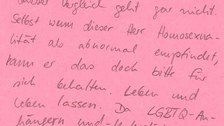 dieser Vergleich geht gar nicht.
Selbst wenn dieser Herr Homosexua-
lität als abnormal empfindet,
kann er das doch bitte für
sich behalten. Leben und
Leben lassen. Da LGBTQ-An-
hängern und